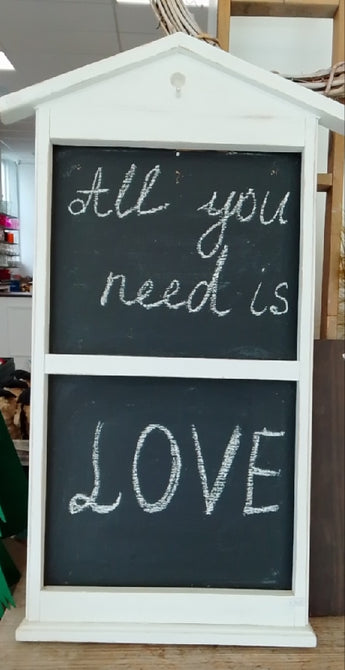 All you
need is
LOVE